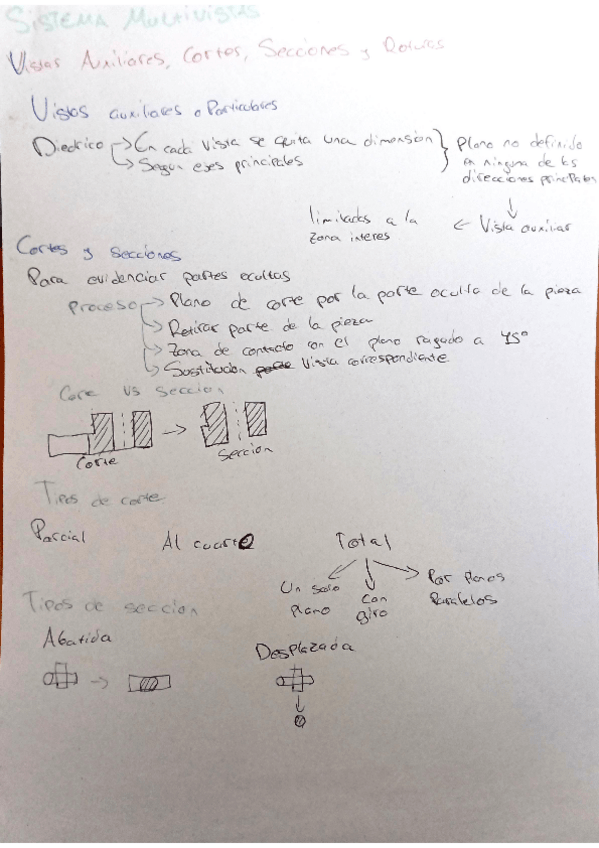 SISTEMA MULTIVISTAS
Vistas Auxiliares, Cortes, Secciones y Roturas
Vistas auxiliares o Particulares
Diedrico → En cada vista se quita una dimensión } Plano no definido
→ Segun ejes principales
en ninguna de las
direcciones principales
↓
limitadas a la ← Vista auxiliar
zona interes
Cortes y secciones
Para evidenciar partes ocultas
Proceso → Plano de corte por la parte oculta de la pieza
→ Retirar parte de la pieza
→ Zona de contacto con el plano rayado a 45°
→ Sustitución parte vista correspondiente
Corte VS Seccion
→
Corte
Seccion
Tipos de corte
Parcial Al cuarto Total
Un solo plano
Con giro
Por planos paralelos
Tipos de seccion
Abatida Desplazada
→
↓